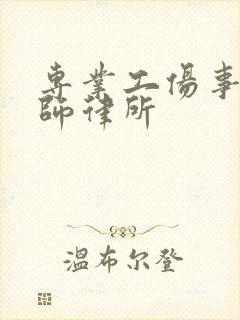 專業工傷事
師律所
溫布尔登